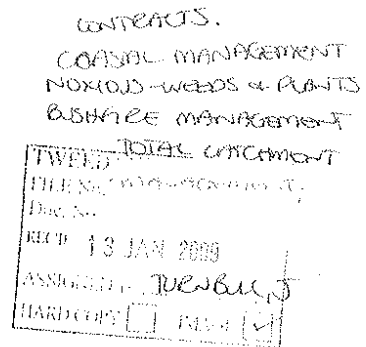 CONTRACTS.
COASTAL MANAGEMENT
NOXIOUS-WEEDS & PLANTS
BUSHFIRE MANAGEMENT
TOTAL CATCHMENT
MANAGEMENT;
TWEED
FILE No.
Doc. No
RECD 13 JAN 2009
ASSIGNED TURNBULL, J
HARD COPY